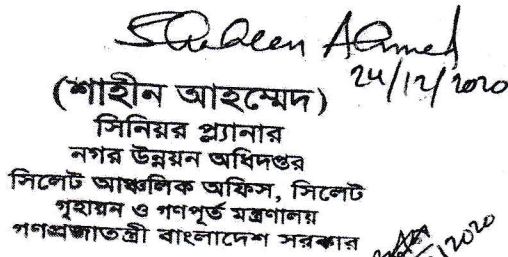 Shaheen Ahmed
24/12/2020
(শাহীন আহম্মেদ)
সিনিয়র প্ল্যানার
নগর উন্নয়ন অধিদপ্তর
সিলেট আঞ্চলিক অফিস, সিলেট
গৃহায়ন ও গণপূর্ত মন্ত্রণালয়
গণপ্রজাতন্ত্রী বাংলাদেশ সরকার
/2020